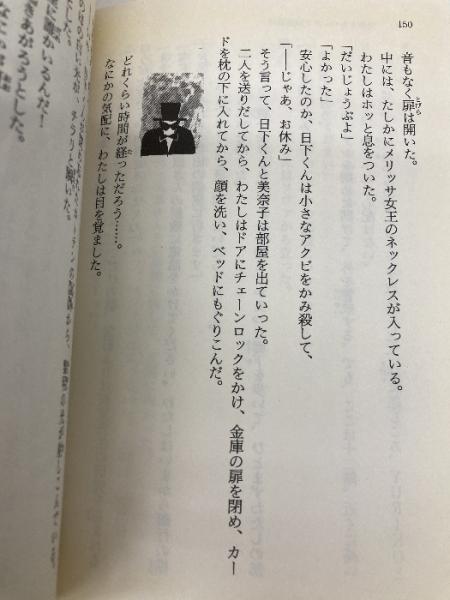 150
音もなく扉は開いた。
中には、たしかにメリッサ女王のネックレスが入っている。
わたしはホッと息をついた。
「だいじょうぶよ」
「よかった」
安心したのか、日下くんは小さなアクビをかみ殺して、
「――じゃあ、お休み」
そう言って、日下くんと美奈子は部屋を出ていった。
二人を送りだしてから、わたしはドアにチェーンロックをかけ、金庫の扉を閉め、カー
ドを枕の下に入れてから、顔を洗い、ベッドにもぐりこんだ。
どれくらい時間が経っただろう……。
なにかの気配に、わたしは目を覚ました。